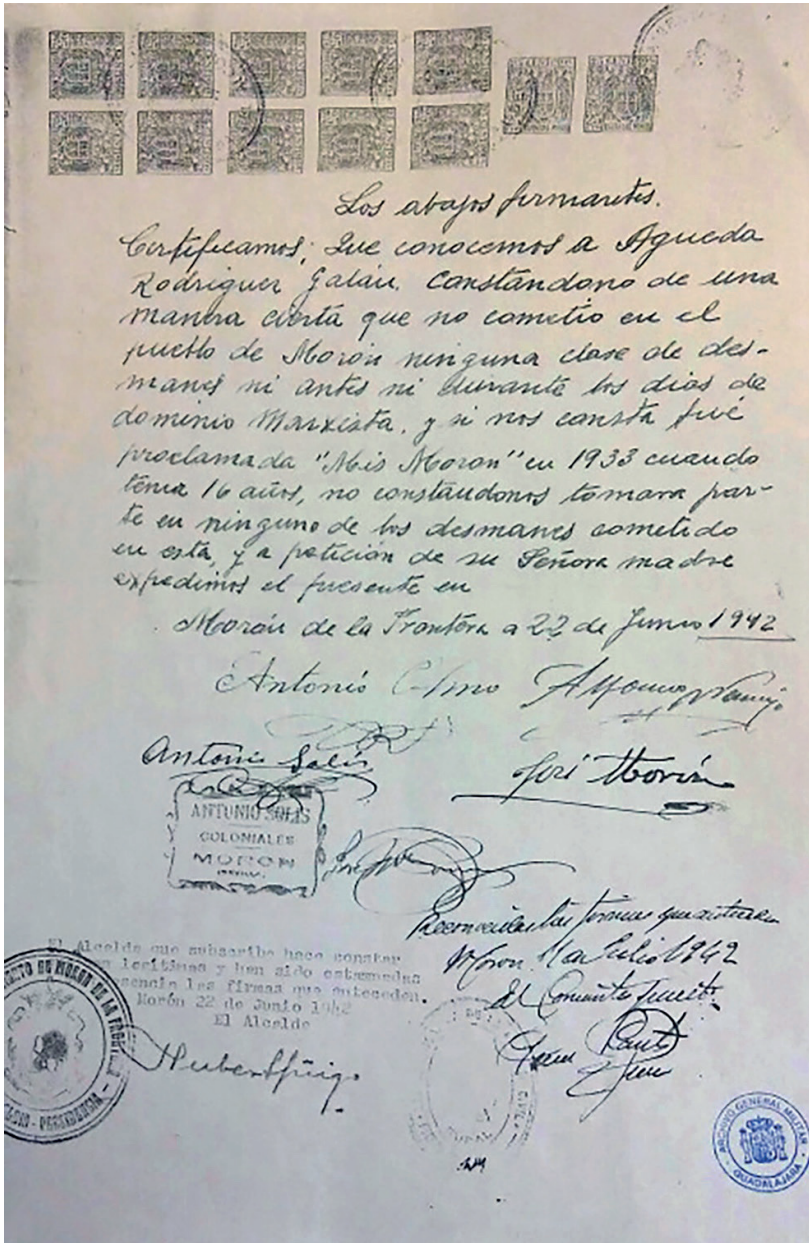 Los abajos firmantes.
Certificamos; Que conocemos a Agueda
Rodriguez Galán. Constándono de una
manera cierta que no cometio en el
pueblo de Morón ninguna clase de des-
manes ni antes ni durante los dias de
dominio Marxista, y si nos consta fué
proclamada "Mis Moron" en 1933 cuando
tenia 16 años, no constandonos tomara par-
te en ninguno de los desmanes cometido
en esta, y a petición de su Señora madre
expedimos el presente en
Morón de la Frontera a 22 de Junio 1942
Antonio
Antonio Solis
José Morón
ANTONIO SOLIS
COLONIALES
MORON
Reconocidas las firmas que anteceden
Moron Julio 1942
El
El Alcalde que subscribe hace constar
son legitimas y han sido estampadas
presencia las firmas que anteceden.
Morón 22 de Junio 1942
El Alcalde
DE MORON DE LA FRONTERA
PRESIDENCIA
ARCHIVO GENERAL MILITAR
GUADALAJARA